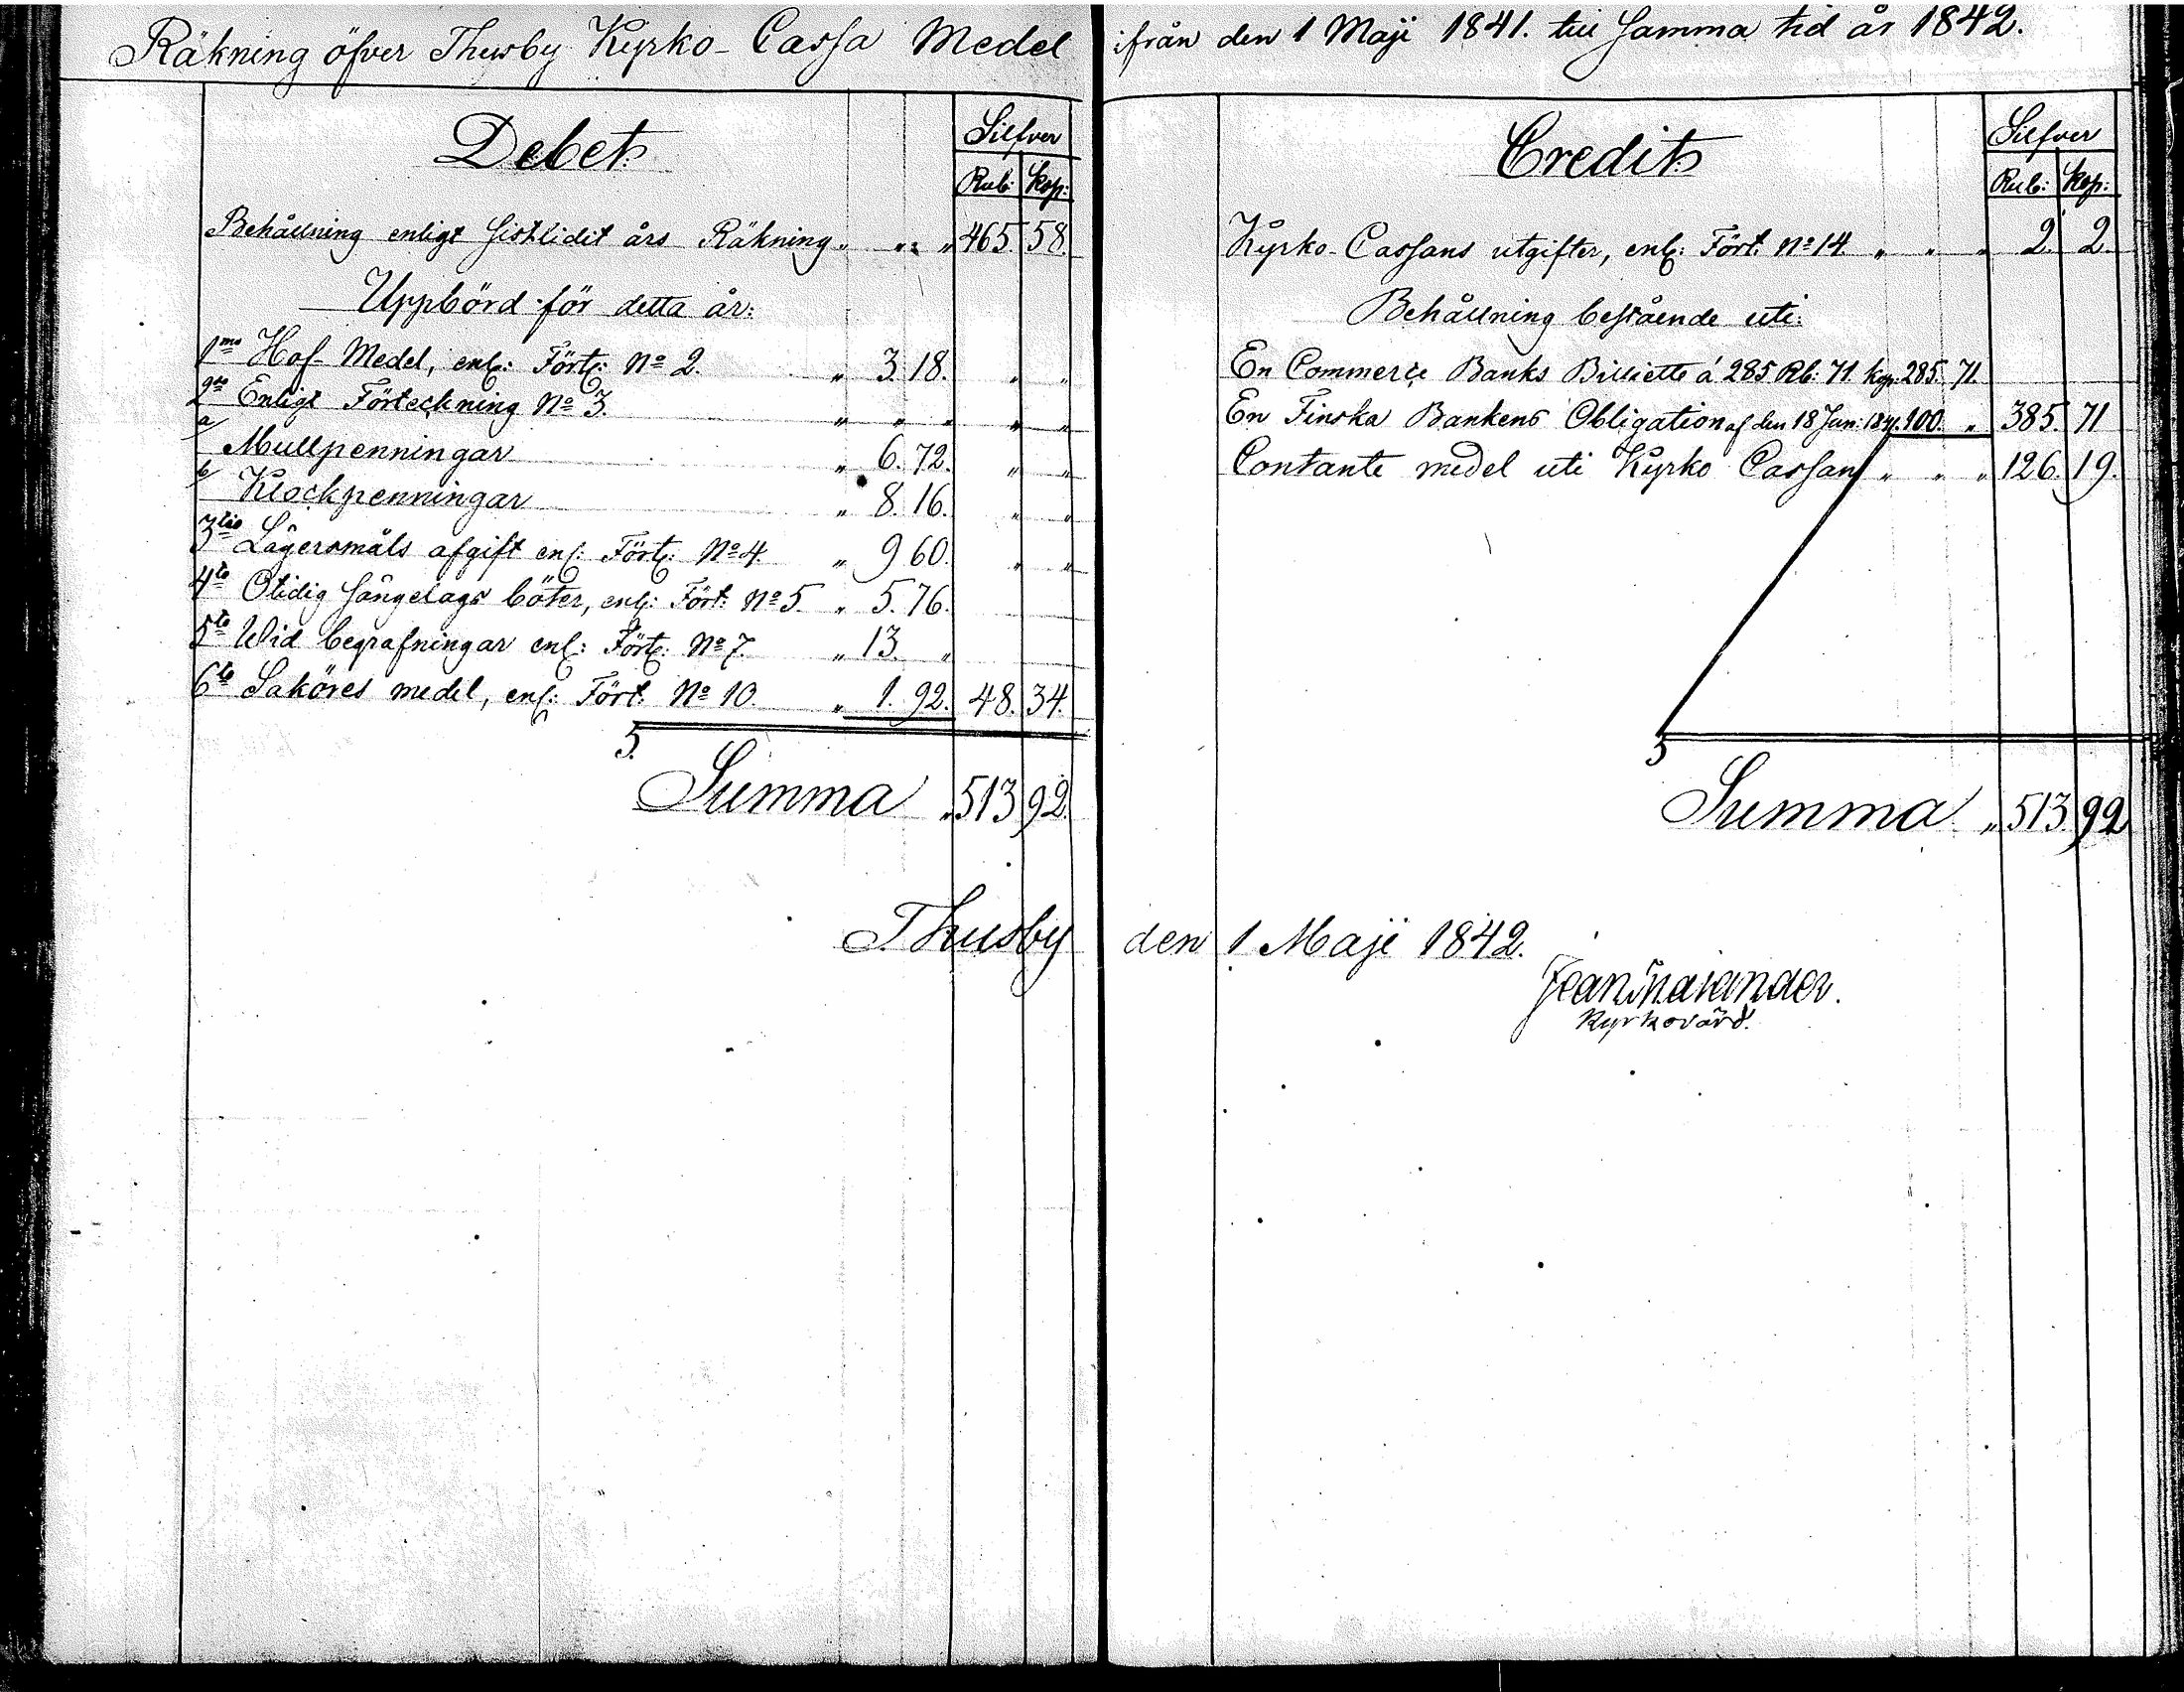 Räkning öfver Thusby Kyrko-Cassa Medel ifrån den 1 Maji 1841. till samma tid år 1842.
Debet
Silfver
Rub: Kop:
Behållning enligt sistlidit års Räkning " " " 465. 58.
Uppbörd för detta år:
1mo Hof-Medel, enl: Förtg: No 2. " 3. 18. " "
2do Enligt Förteckning No 3. " " " " "
a/ Mullpenningar " 6. 72. " "
b/ Klockpenningar " 8. 16. " "
3tio Lägersmåls afgift enl: Förtg: No 4. " 9 60. " "
4to Otidig sängelags böter, enl: Fört: No 5. " 5. 76.
5to Wid begrafningar enl: Förtg: No 7. " 13. "
6to Saköres medel, enl: Fört: No 10. " 1. 92. 48. 34.
Summa " 513 92.
Credit
Silfver
Rub: Kop:
Kyrko-Cassans utgifter, enl: Fört: No 14. " " " 2. 2.
Behållning bestående uti:
En Commerce Banks Billiette á 285 Rb: 71. kop: 285. 71.
En Finska Bankens Obligation af den 18 Jan: 1841. 100. " 385. 71
Contante medel uti Kyrko Cassan " " " 126. 19.
Summa " 513. 92
Thusby den 1 Maji 1842.
Jean
Kyrkovärd.